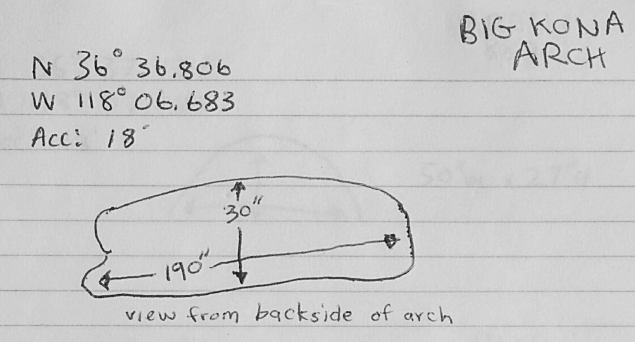 BIG KONA
ARCH
N 36° 36.806
W 118° 06.683
Acc: 18'
30"
190"
view from backside of arch